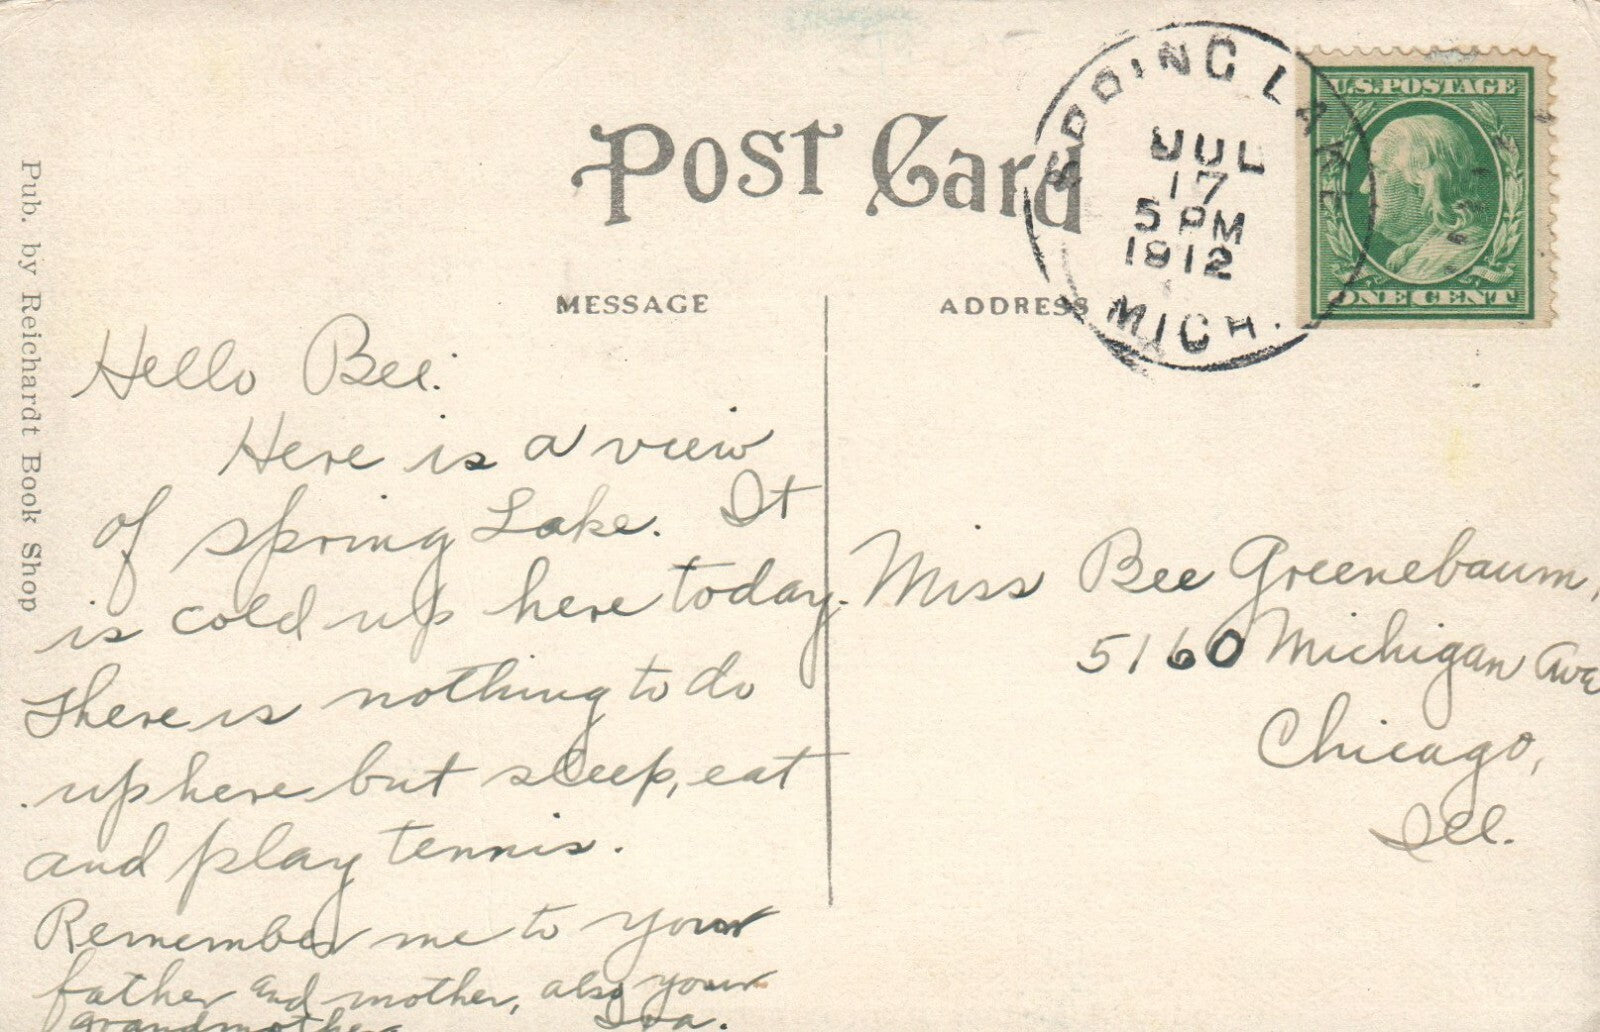 Post Card
MESSAGE
ADDRESS
SPRING LAKE
JUL
17
5 PM
1912
MICH.
U.S. POSTAGE
ONE CENT
Pub. by Reichardt Book Shop
Hello Bee.
Here is a view
of Spring Lake. It
is cold up here today.
There is nothing to do
up here but sleep, eat
and play tennis.
Remember me to your
father and mother, also your
grandmother.
Ira.
Miss Bee Greenebaum,
5160 Michigan Ave
Chicago,
Ill.